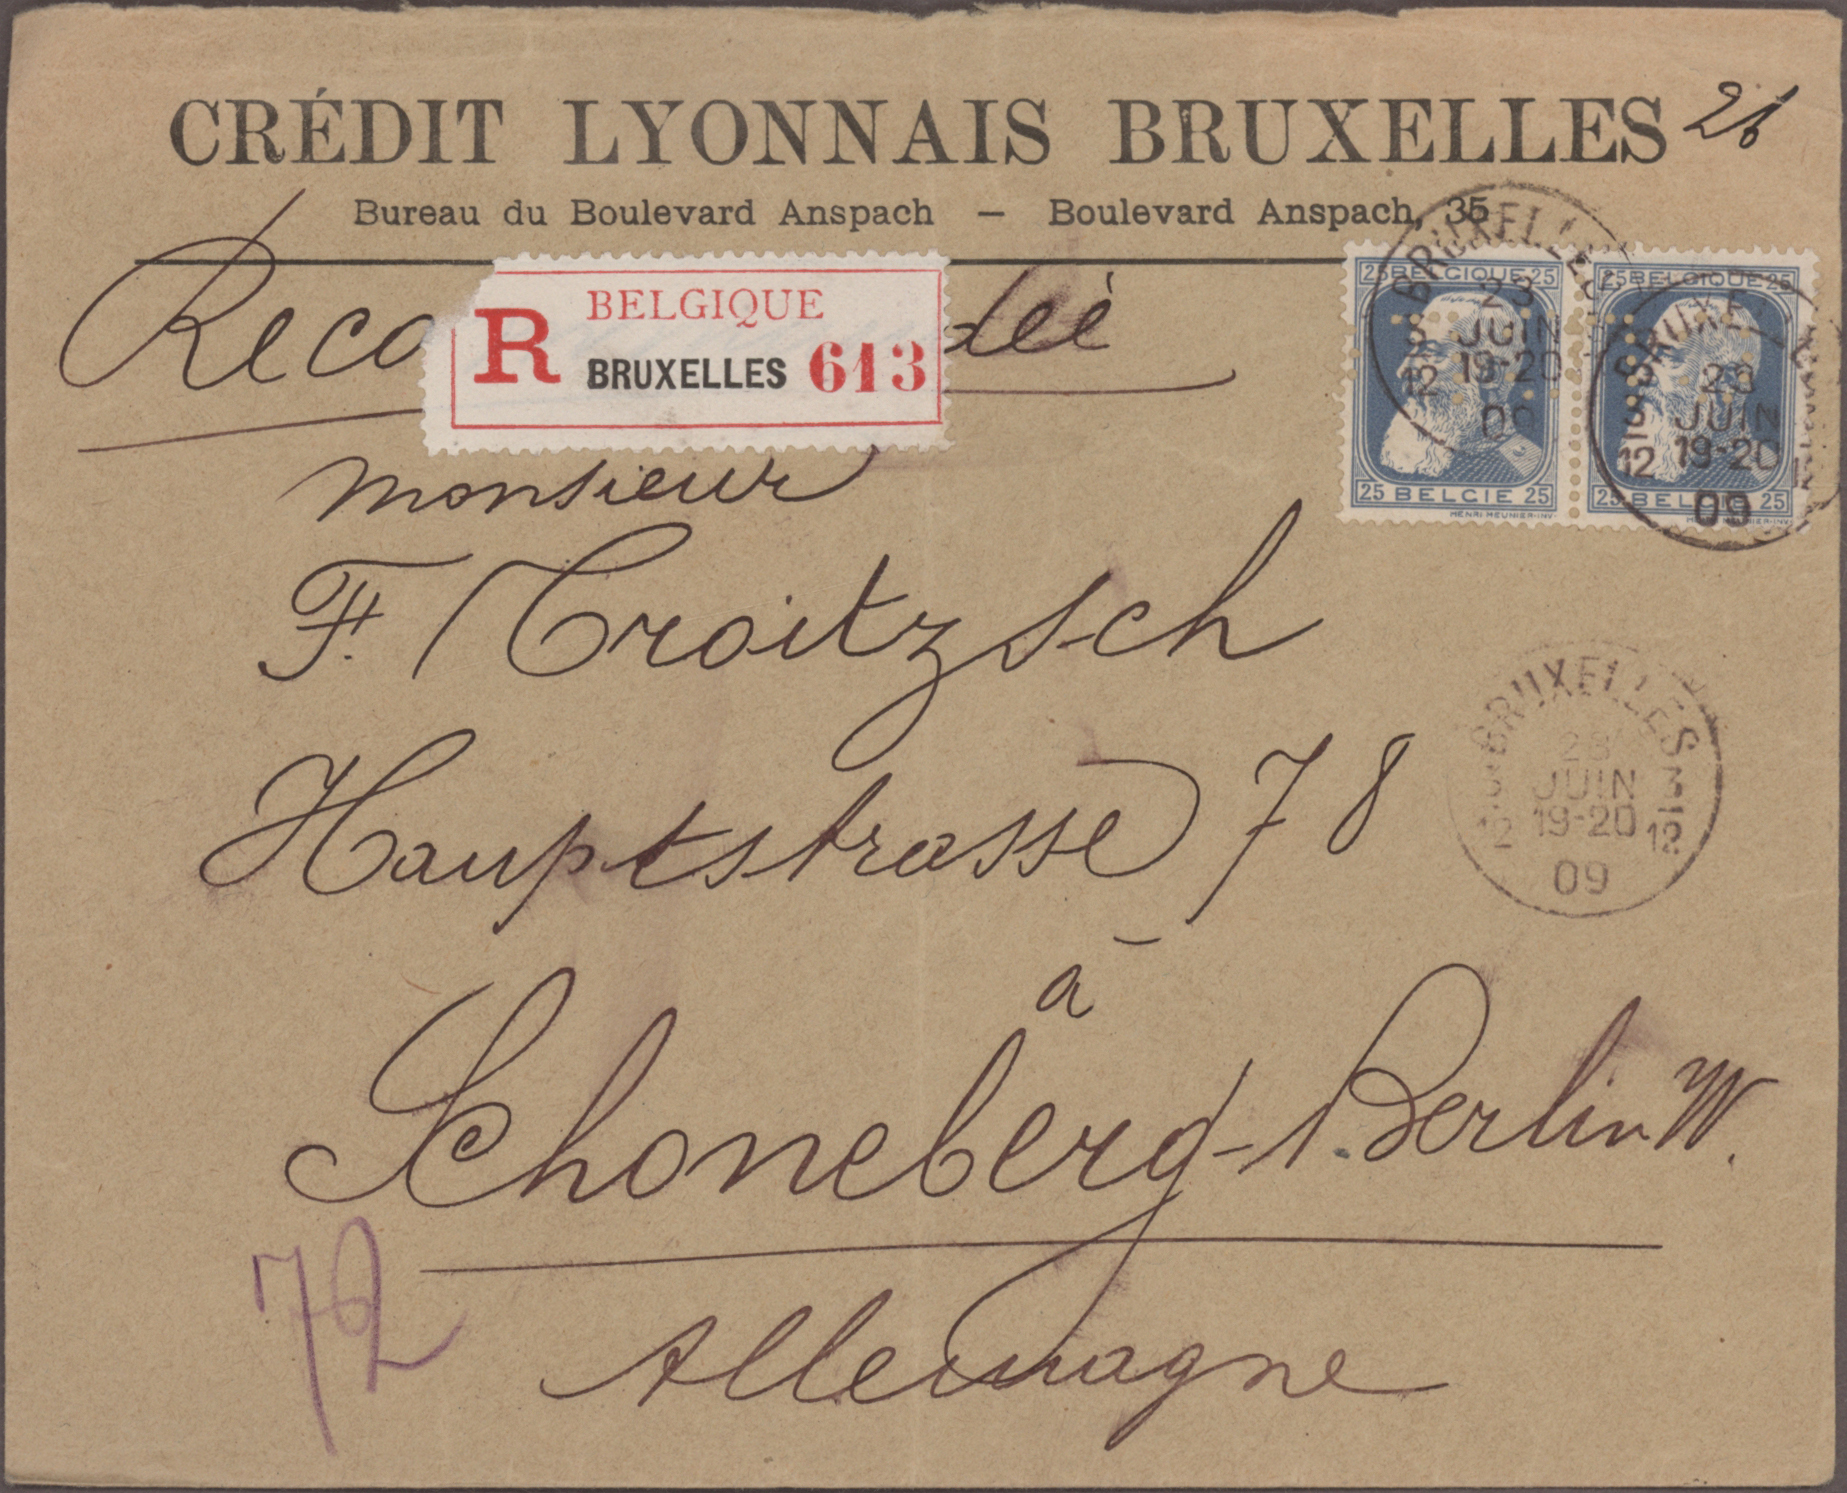 CRÉDIT LYONNAIS BRUXELLES
26
Bureau du Boulevard Anspach — Boulevard Anspach, 35
Reco dée
R BELGIQUE
BRUXELLES 613
25 BELGIQUE 25
25 BELGIE 25
HENRI MEUNIER-INV.
25 BELGIQUE 25
25 BELGIE 25
BRUXELLES
23
JUIN
19-20
12
09
BRUXE
23
JUIN
19-20
12
09
Monsieur
F. Troitzsch
Hauptstrasse 78
BRUXELLES
23
JUIN
19-20
12 12
09
à
Schoneberg-1. Berlin W.
72
Allemagne